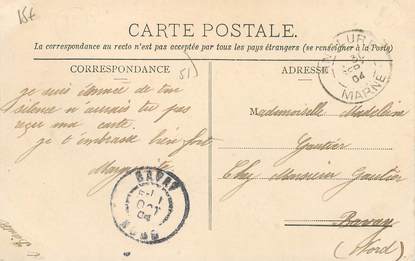 15€
CARTE POSTALE.
La correspondance au recto n'est pas acceptée par tous les pays étrangers (se renseigner à la Poste)
CORRESPONDANCE
51
ADRESSE
MARNE
04
je suis de ton
silence n'aurais tu pas
reçu ma carte.
je t'embrasse bien fort
Marguerite
Mademoiselle Madeleine
Gautier
Chez Monsieur Gautier
Bavay
(Nord)
BAVAY
OCT
04
NORD